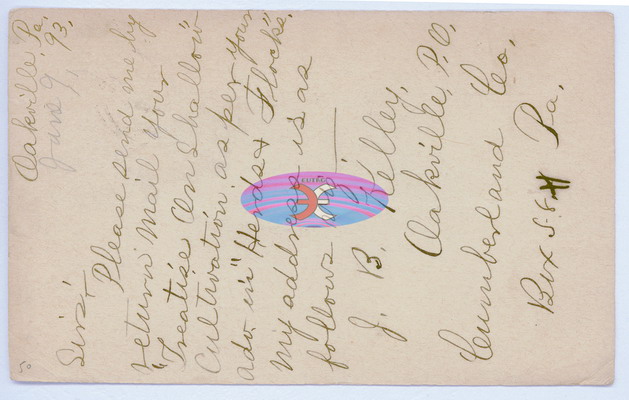 Oakville, Pa.
June 9, 93.
Sir:
Please send me by
return mail your
"Treatise on Shallow
Cultivation" as per your
adv. in "Herds & Flocks".
My address is as
follows
J. B. Kelley,
Oakville, P.O.
Cumberland Co.
Box 58 Pa.
50